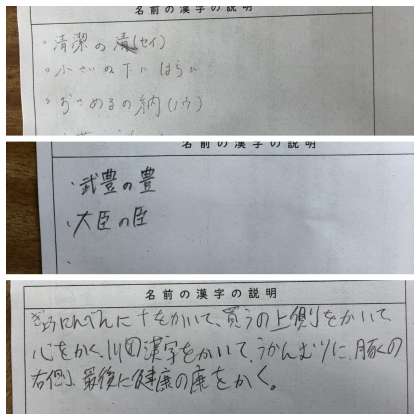 名前の漢字の説明
・清潔の清(セイ)
・小さいの下にはらい
・おさめるの納(ノウ)
名前の漢字の説明
・武豊の豊
・大臣の臣
・
名前の漢字の説明
ぎょうにんべんに十をかいて、買うの上側をかいて
心をかく、川四漢字をかいて、うかんむりに、豚の
右側、最後に健康の康をかく。